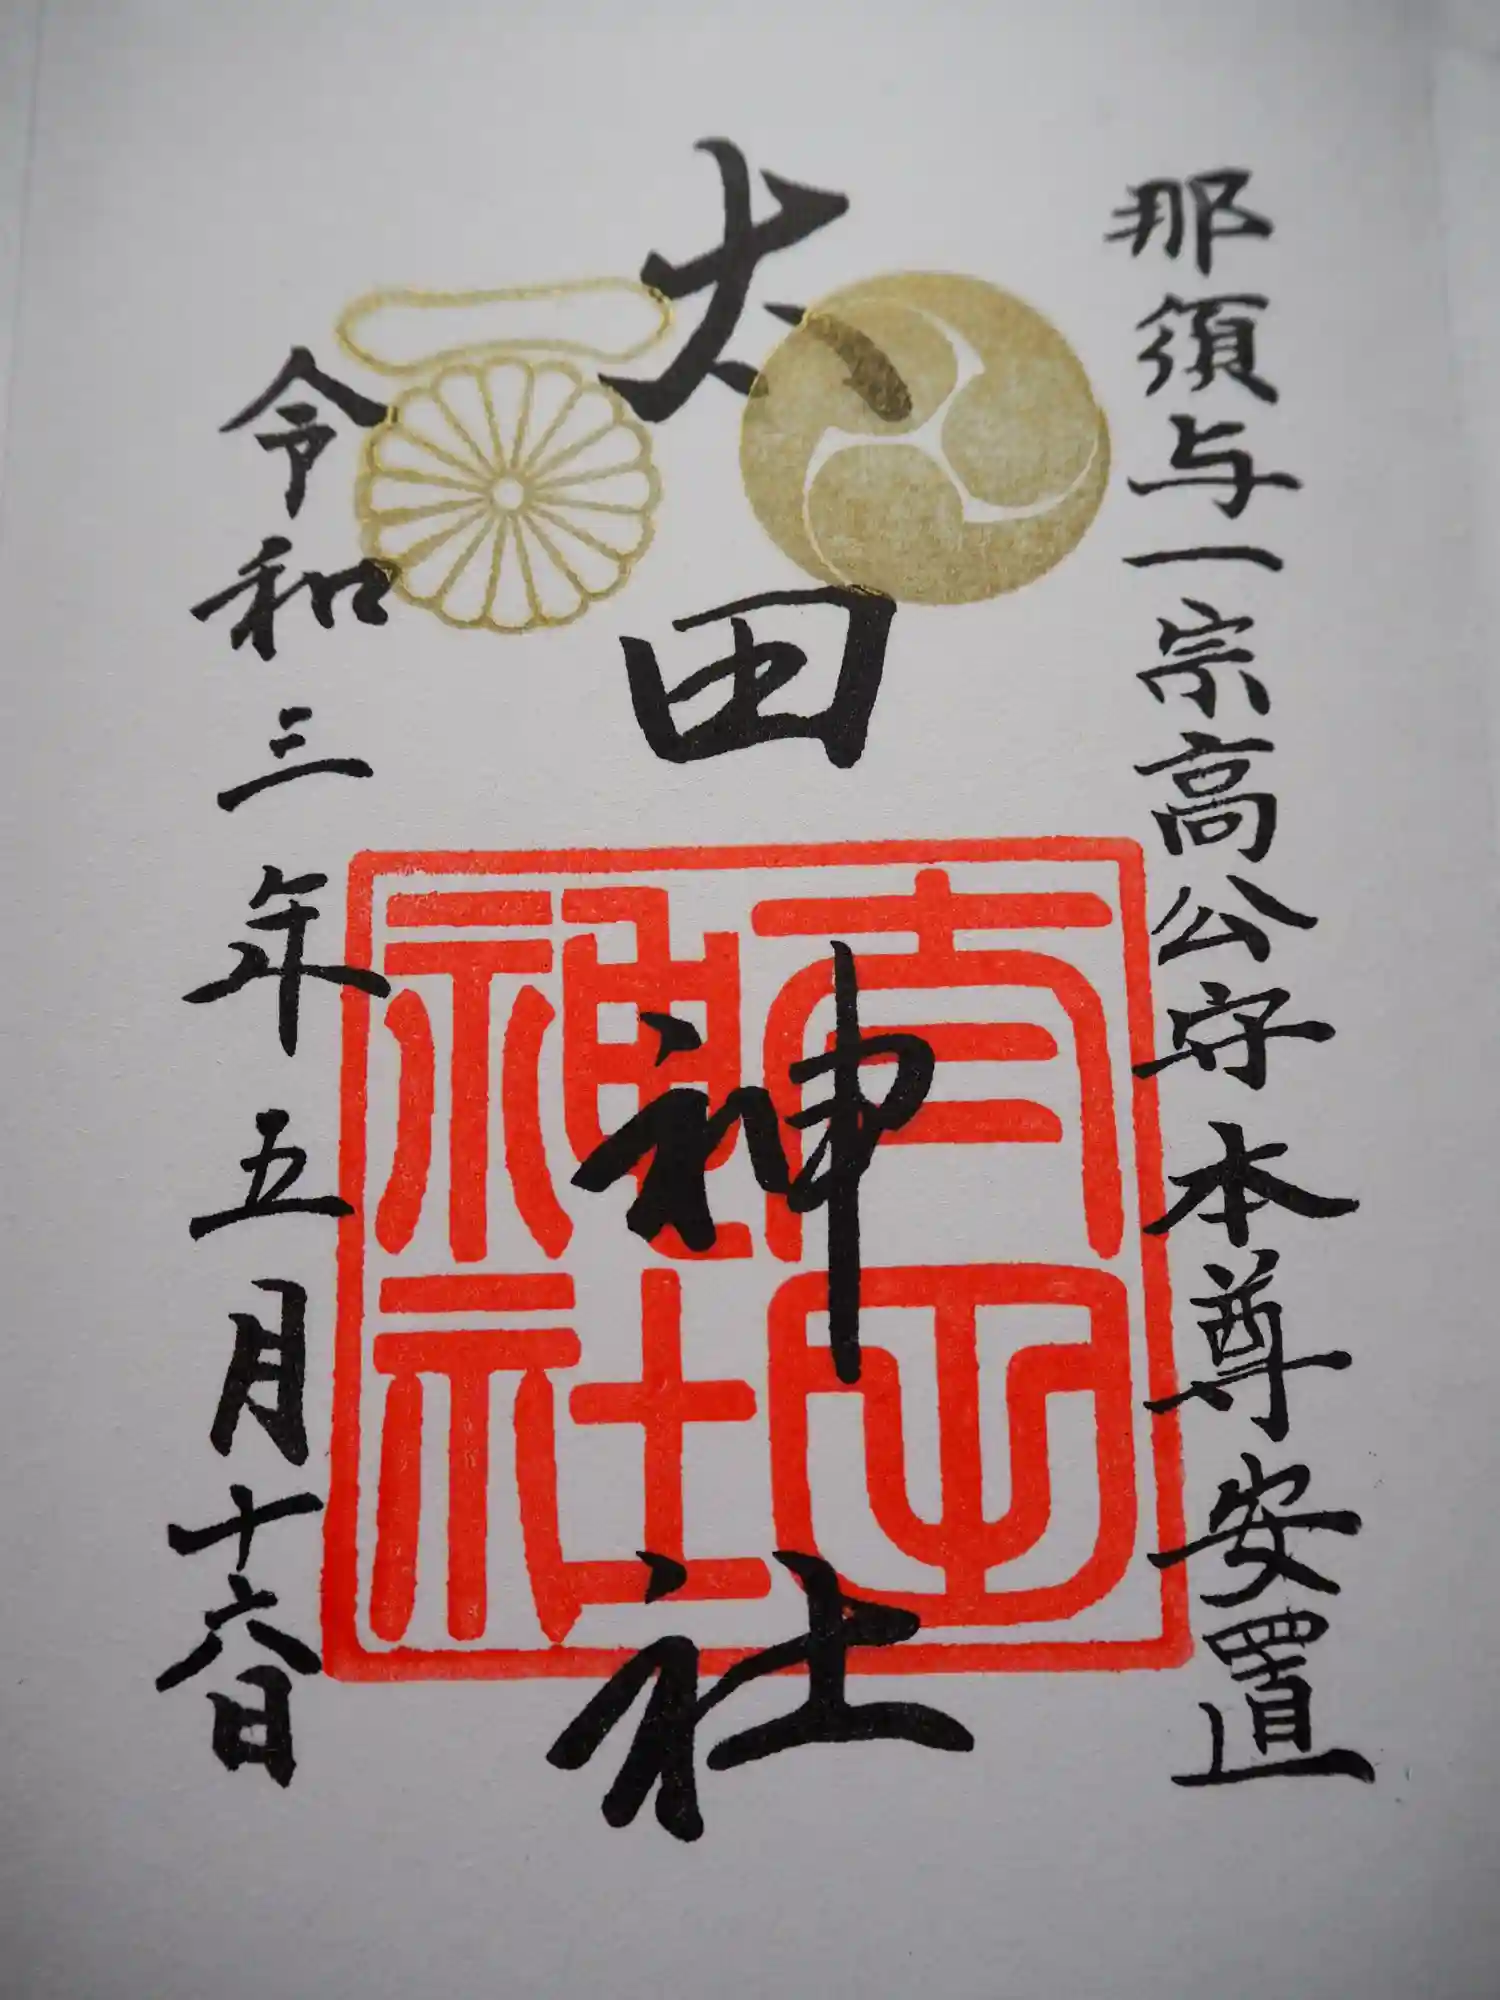 那須与一宗高公守本尊安置
太田神社
令和三年五月十六日
神社